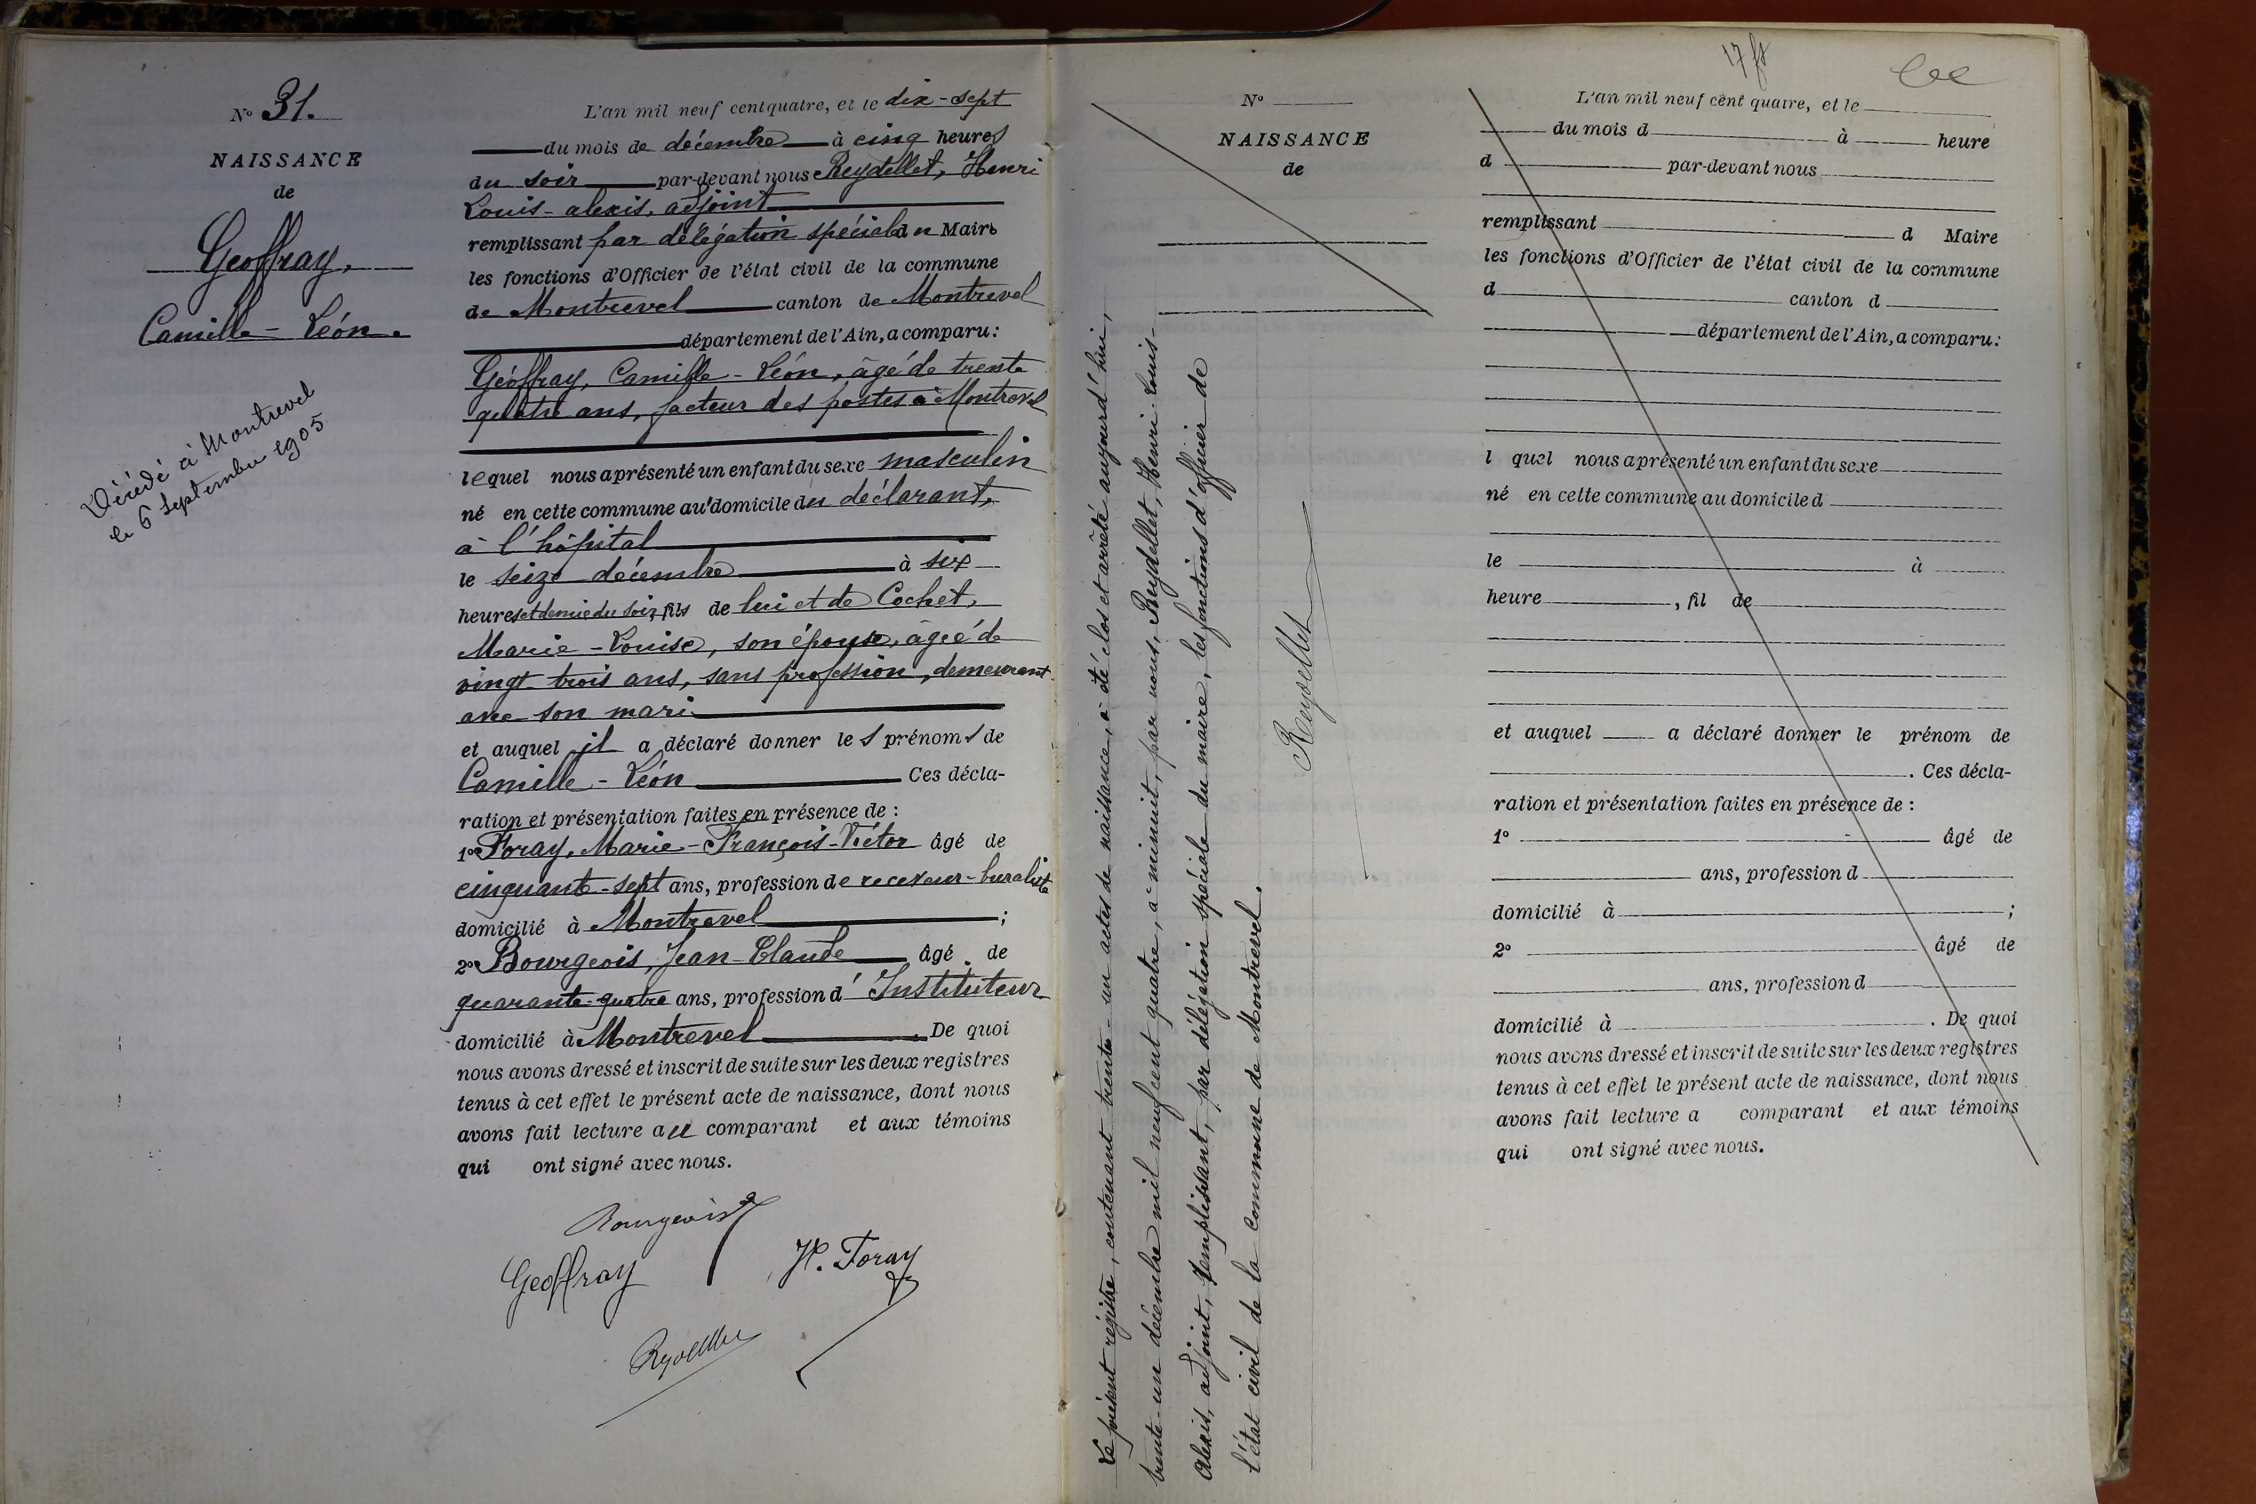 N° 31.
NAISSANCE
de
Geoffray,
Camille - Léon.
Décédé à Montrevel
le 6 Septembre 1905
L'an mil neuf cent quatre, et le dix-sept
du mois de décembre à cinq heures
du soir par-devant nous Reydellet, Henri
Louis-alexis, adjoint
remplissant par délégation spéciale du Maire
les fonctions d'Officier de l'état civil de la commune
de Montrevel canton de Montrevel
département de l'Ain, a comparu:
Geoffray, Camille - Léon, âgé de trente
quatre ans, facteur des postes à Montrevel
lequel nous a présenté un enfant du sexe masculin
né en cette commune au domicile du déclarant,
à l'hôpital
le seize décembre à six
heures et demie du soir, fils de lui et de Cochet,
Marie - Louise, son épouse, âgée de
vingt-trois ans, sans profession, demeurant
avec son mari
et auquel il a déclaré donner les prénoms de
Camille - Léon Ces décla-
ration et présentation faites en présence de :
1° Foray, Marie-François-Victor âgé de
cinquante-sept ans, profession de receveur-buraliste
domicilié à Montrevel ;
2° Bourgeois, Jean-Claude âgé de
quarante-quatre ans, profession d'Instituteur
domicilié à Montrevel . De quoi
nous avons dressé et inscrit de suite sur les deux registres
tenus à cet effet le présent acte de naissance, dont nous
avons fait lecture au comparant et aux témoins
qui ont signé avec nous.
Bourgeois
Geoffray
H. Foray
Reydellet
Le présent registre, contenant trente-un actes de naissance, a été clos et arrêté aujourd'hui,
trente-un décembre mil neuf cent quatre, à minuit, par nous, Reydellet, Henri-Louis-
Alexis, adjoint, remplissant, par délégation spéciale du maire, les fonctions d'officier de
l'état civil de la commune de Montrevel.
Reydellet
N°
NAISSANCE
de
17
L'an mil neuf cent quatre, et le
du mois d à heure
d par-devant nous
remplissant d Maire
les fonctions d'Officier de l'état civil de la commune
d canton d
département de l'Ain, a comparu:
l quel nous a présenté un enfant du sexe
né en cette commune au domicile d
le à
heure , fil de
et auquel a déclaré donner le prénom de
. Ces décla-
ration et présentation faites en présence de :
1° âgé de
ans, profession d
domicilié à ;
2° âgé de
ans, profession d
domicilié à . De quoi
nous avons dressé et inscrit de suite sur les deux registres
tenus à cet effet le présent acte de naissance, dont nous
avons fait lecture a comparant et aux témoins
qui ont signé avec nous.